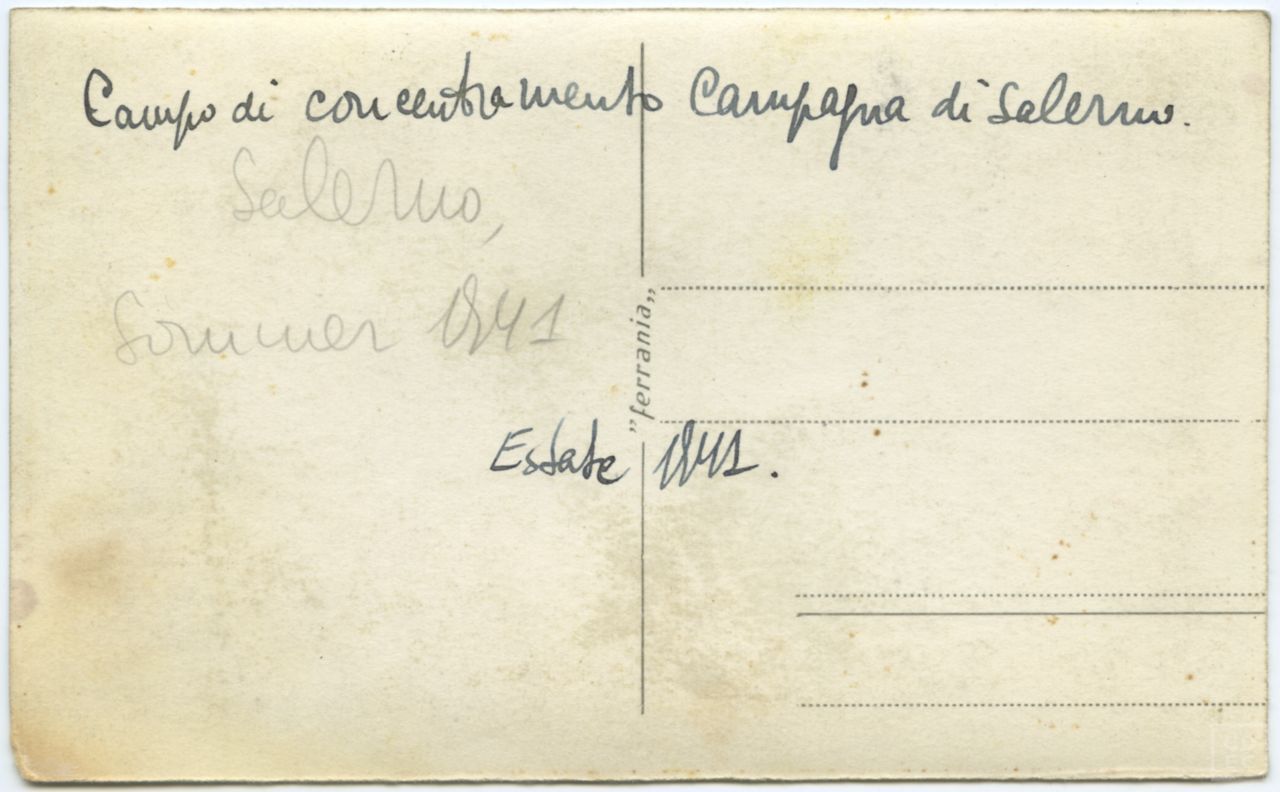 Campo di concentramento Campagna di Salerno.
Salerno,
Sommer 1941
„ferrania„
Estate 1941.